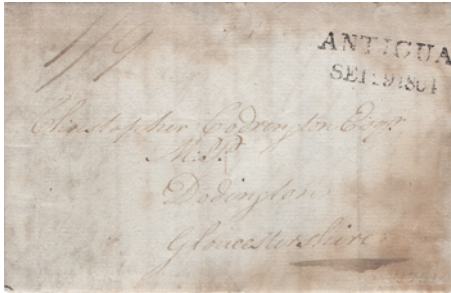 1/9
ANTIGUA
SE 19 1801
Christopher Codrington Esqr
M.P.
Dodington
Gloucestershire